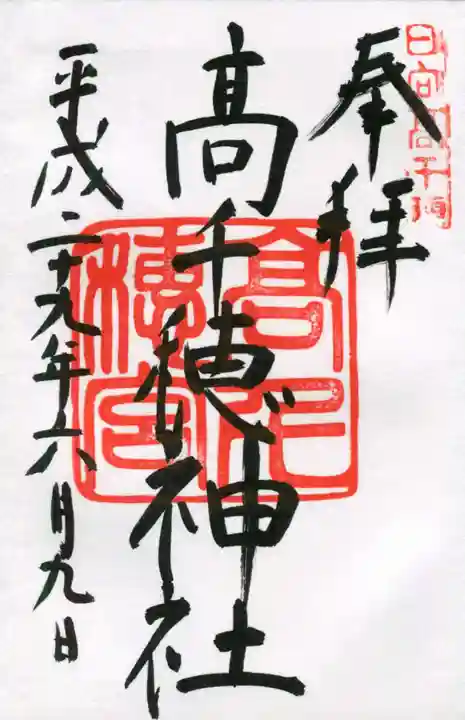 日向高千穂
奉拝
高千穂神社
高千穂宮
平成二十九年六月九日